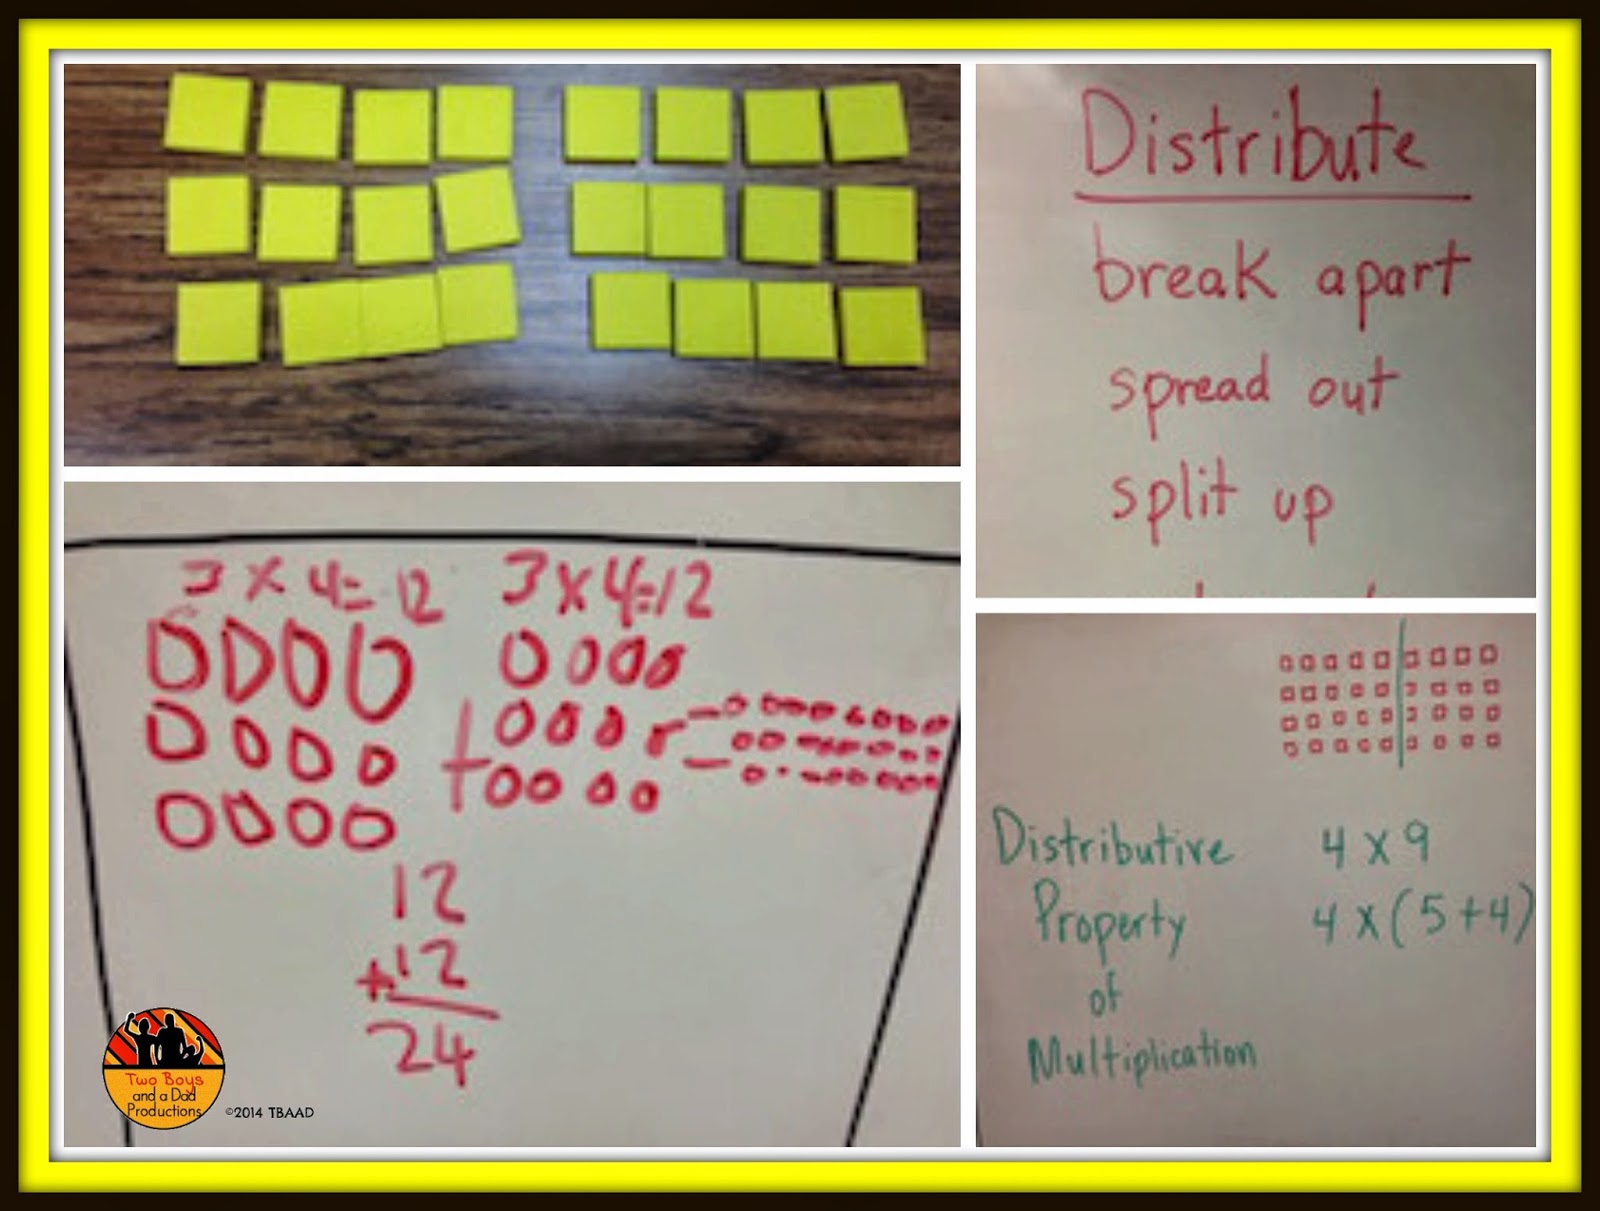 Distribute
break apart
spread out
split up
3 x 4 = 12
3 x 4 = 12
12
+ 12
24
Distributive
Property
of
Multiplication
4 x 9
4 x (5 + 4)
Two Boys
and a Dad
Productions
©2014 TBAAD